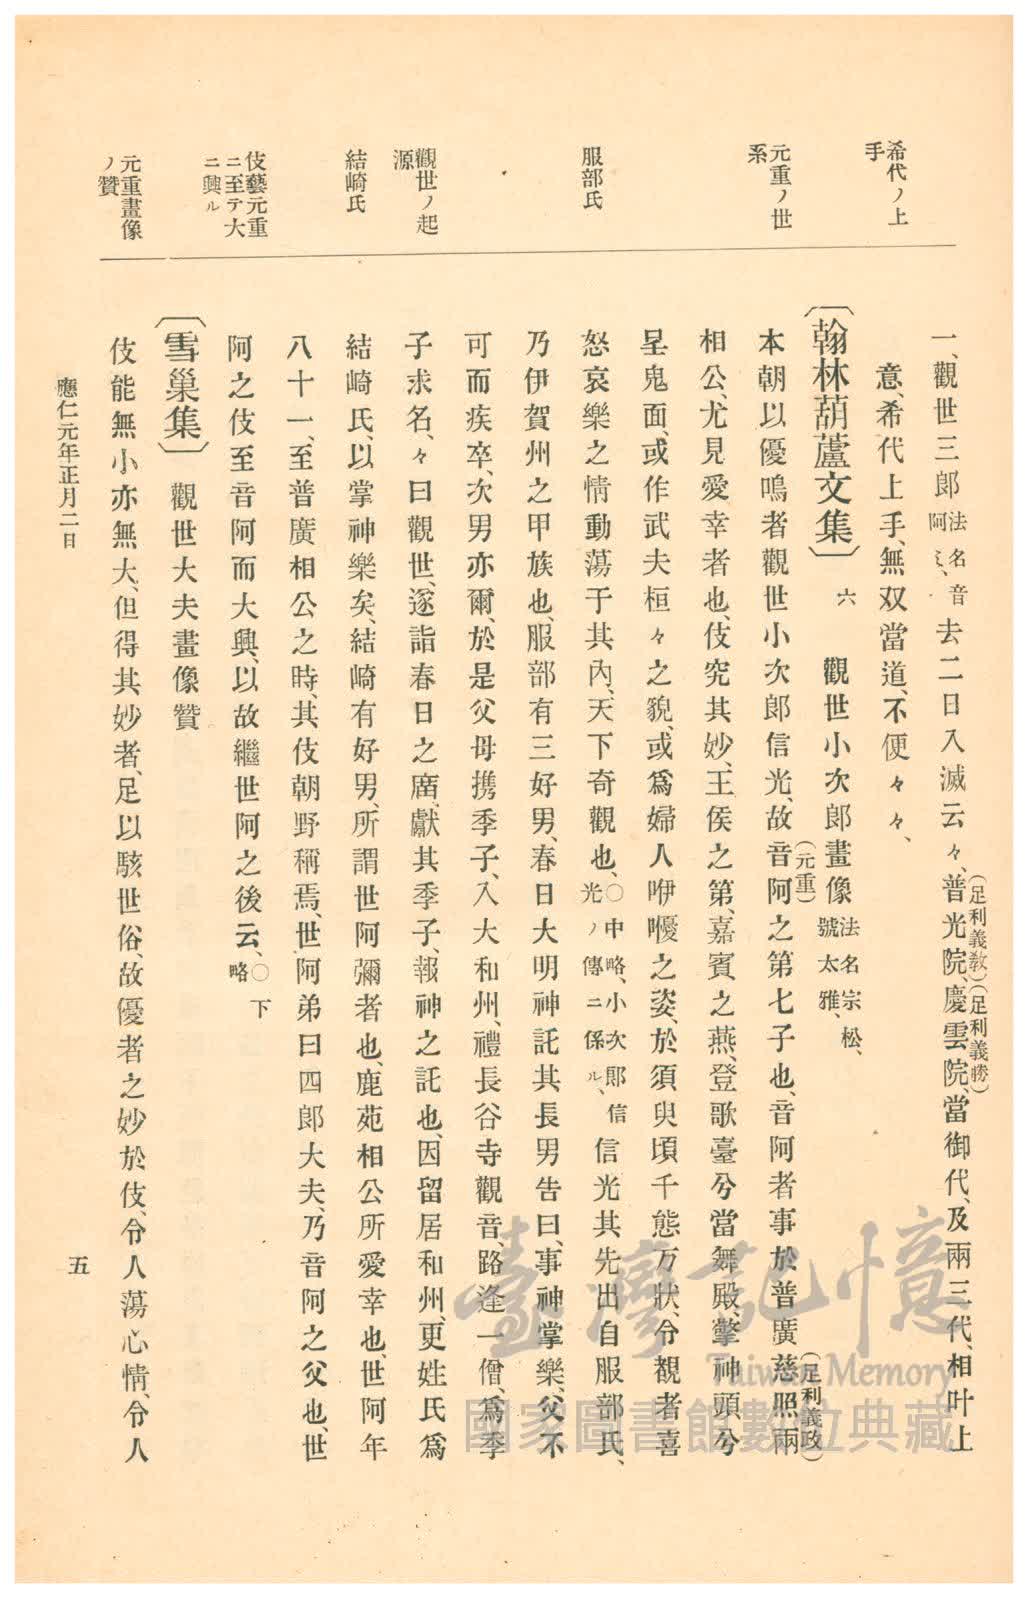 希代ノ上
手
元重ノ世
系
服部氏
觀世ノ起
源
結崎氏
伎藝元重
ニ至テ大
ニ興ル
元重畫像
ノ贊
一、觀世三郎法名音阿ミ、去二日入滅云々、普光院(足利義敎)、慶雲院(足利義勝)、當御代、及兩三代、相叶上
意、希代上手、無双當道、不便々々、
〔翰林葫蘆文集〕 六 觀世小次郎畫像 法名宗松、號太雅、
本朝以優鳴者觀世小次郎信光、故音阿(元重)之第七子也、音阿者事於普廣慈照(足利義政)兩
相公、尤見愛幸者也、伎究其妙、王侯之第、嘉賓之燕、登歌臺兮當舞殿、擎神頭、兮
呈鬼面、或作武夫桓々之貌、或爲婦人咿嚘之姿、於須臾頃千態万狀、令覩者喜
怒哀樂之情動蕩于其內、天下奇觀也、○中略、小次郎信光ノ傳ニ係ル、信光其先出自服部氏、
乃伊賀州之甲族也、服部有三好男、春日大明神託其長男告曰、事神掌樂、父不
可而疾卒、次男亦爾、於是父母携季子、入大和州、禮長谷寺觀音、路逢一僧、爲季
子求名、々曰觀世、逐詣春日之庿、獻其季子、報神之託也、因留居和州、更姓氏爲
結崎氏、以掌神樂矣、結崎有好男、所謂世阿彌者也、鹿苑相公所愛幸也、世阿年
八十一、至普廣相公之時、其伎朝野稱焉、世阿弟曰四郎大夫、乃音阿之父也、世
阿之伎至音阿而大興、以故繼世阿之後云、○下略
〔雪巢集〕 觀世大夫畫像贊
伎能無小亦無大、但得其妙者、足以駭世俗、故優者之妙於伎、令人蕩心情、令人
應仁元年正月二日
五
臺灣記憶
Taiwan Memory
國家圖書館數位典藏